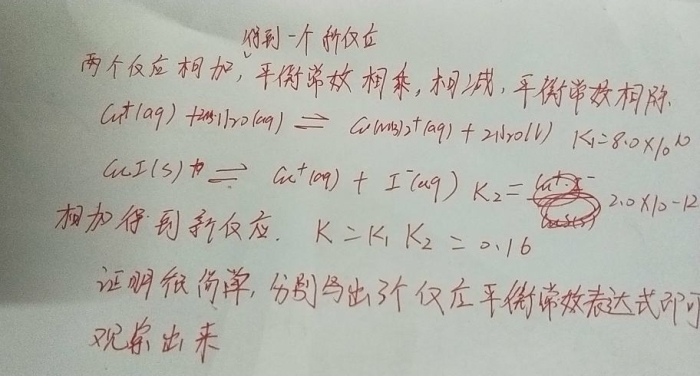 得到一个新反应
两个反应相加，平衡常数相乘，相减，平衡常数相除.
Cu⁺(aq) + 2NH₃·H₂O(aq) ⇌ Cu(NH₃)₂⁺(aq) + 2H₂O(l) K₁=8.0×10¹⁰
CuI(s) ⇌ Cu⁺(aq) + I⁻(aq) K₂= 2.0×10-12
相加得到新反应. K=K₁K₂=0.16
证明很简单，分别写出3个反应平衡常数表达式即可
观察出来